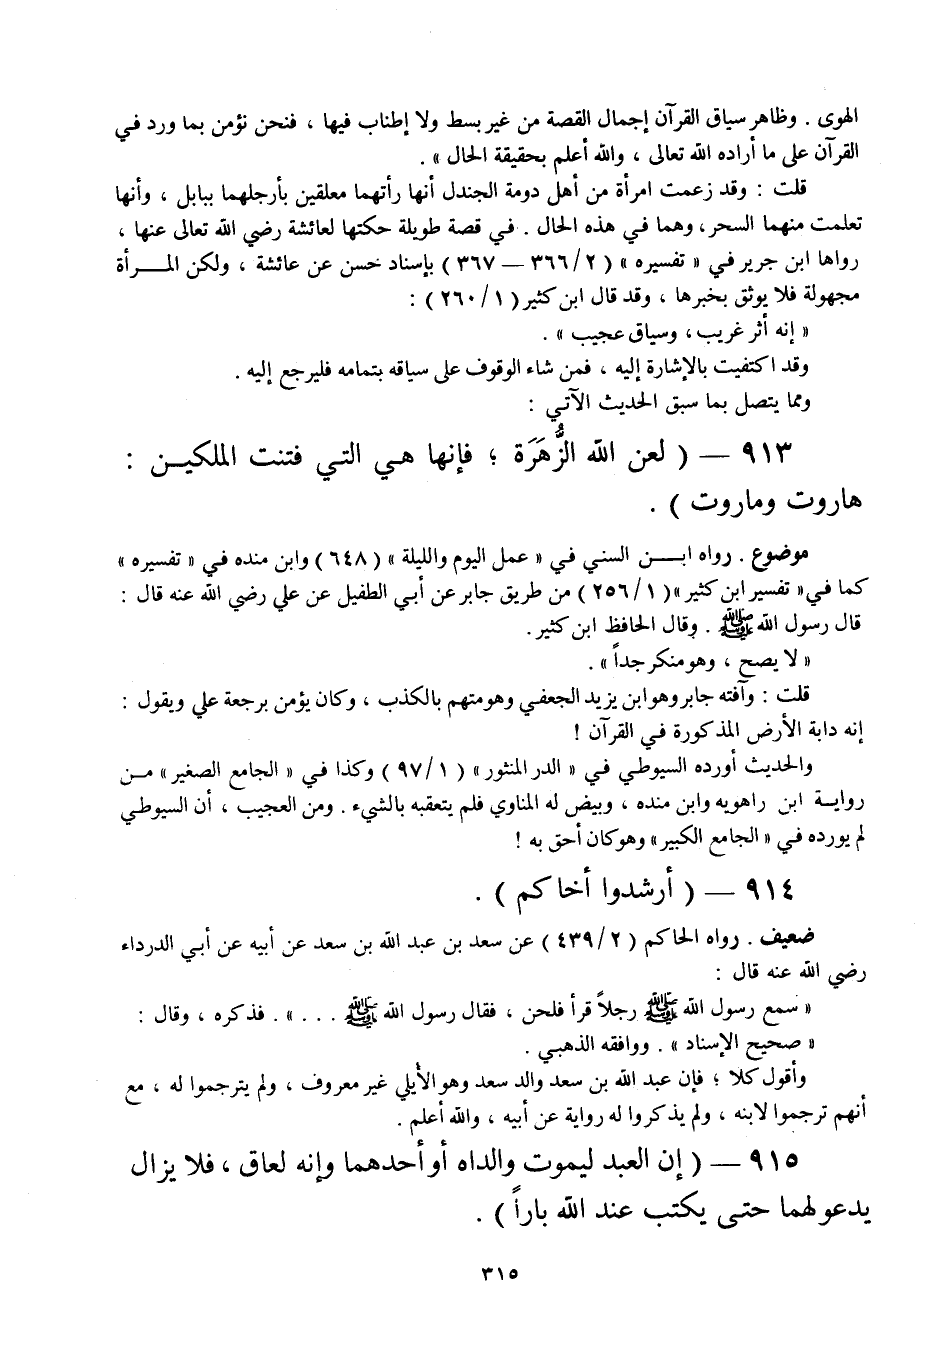 الهوى . وظاهر سياق القرآن إجمال القصة من غير بسط ولا إطناب فيها ، فنحن نؤمن بما ورد في
القرآن على ما أراده الله تعالى ، والله أعلم بحقيقة الحال » .
قلت : وقد زعمت امرأة من أهل دومة الجندل أنها رأتهما معلقين بأرجلهما ببابل ، وأنها
تعلمت منهما السحر، وهما في هذه الحال . في قصة طويلة حكتها لعائشة رضي الله تعالى عنها ،
رواها ابن جرير في « تفسيره » ( ٢/ ٣٦٦ – ٣٦٧ ) بإسناد حسن عن عائشة ، ولكن المـــرأة
مجهولة فلا يوثق بخبرها ، وقد قال ابن كثير ( ١/ ٢٦٠ ) :
« إنه أثر غريب، وسياق عجيب » .
وقد اكتفيت بالإشارة إليه ، فمن شاء الوقوف على سياقه بتمامه فليرجع إليه .
ومما يتصل بما سبق الحديث الآتي :
٩١٣ – ( لعن الله الزُّهَرَة ؛ فإنها هي التي فتنت الملكين :
هاروت وماروت ) .
موضوع . رواه ابـــن السني في « عمل اليوم والليلة » ( ٦٤٨ ) وابن منده في « تفسيره »
كما في « تفسير ابن كثير » ( ١/ ٢٥٦ ) من طريق جابر عن أبي الطفيل عن علي رضي الله عنه قال :
قال رسول الله ﷺ . وقال الحافظ ابن كثير .
« لا يصح ، وهو منكر جداً » .
قلت : وآفته جابر وهو ابن يزيد الجعفي وهو متهم بالكذب ، وكان يؤمن برجعة علي ويقول :
إنه دابة الأرض المذكورة في القرآن !
والحديث أورده السيوطي في « الدر المنثور » ( ١/ ٩٧ ) وكذا في « الجامع الصغير » مـن
روايـة ابن راهويه وابن منده ، وبيض له المناوي فلم يتعقبه بالشيء . ومن العجيب ، أن السيوطي
لم يورده في « الجامع الكبير » وهو كان أحق به !
٩١٤ – ( أرشدوا أخاكم ) .
ضعيف . رواه الحاكم ( ٢/ ٤٣٩ ) عن سعد بن عبد الله بن سعد عن أبيه عن أبي الدرداء
رضي الله عنه قال :
« سمع رسول الله ﷺ رجلاً قرأ فلحن ، فقال رسول الله ﷺ . . . » . فذكره ، وقال :
« صحيح الإسناد » . ووافقه الذهبي .
وأقول كلا ؛ فإن عبد الله بن سعد والد سعد وهو الأيلي غير معروف ، ولم يترجموا له ، مع
أنهم ترجموا لابنه ، ولم يذكروا له رواية عن أبيه ، والله أعلم .
٩١٥ – ( إن العبد ليموت والداه أو أحدهما وإنه لعاق ، فلا يزال
يدعو لهما حتى يكتب عند الله باراً ) .
٣١٥